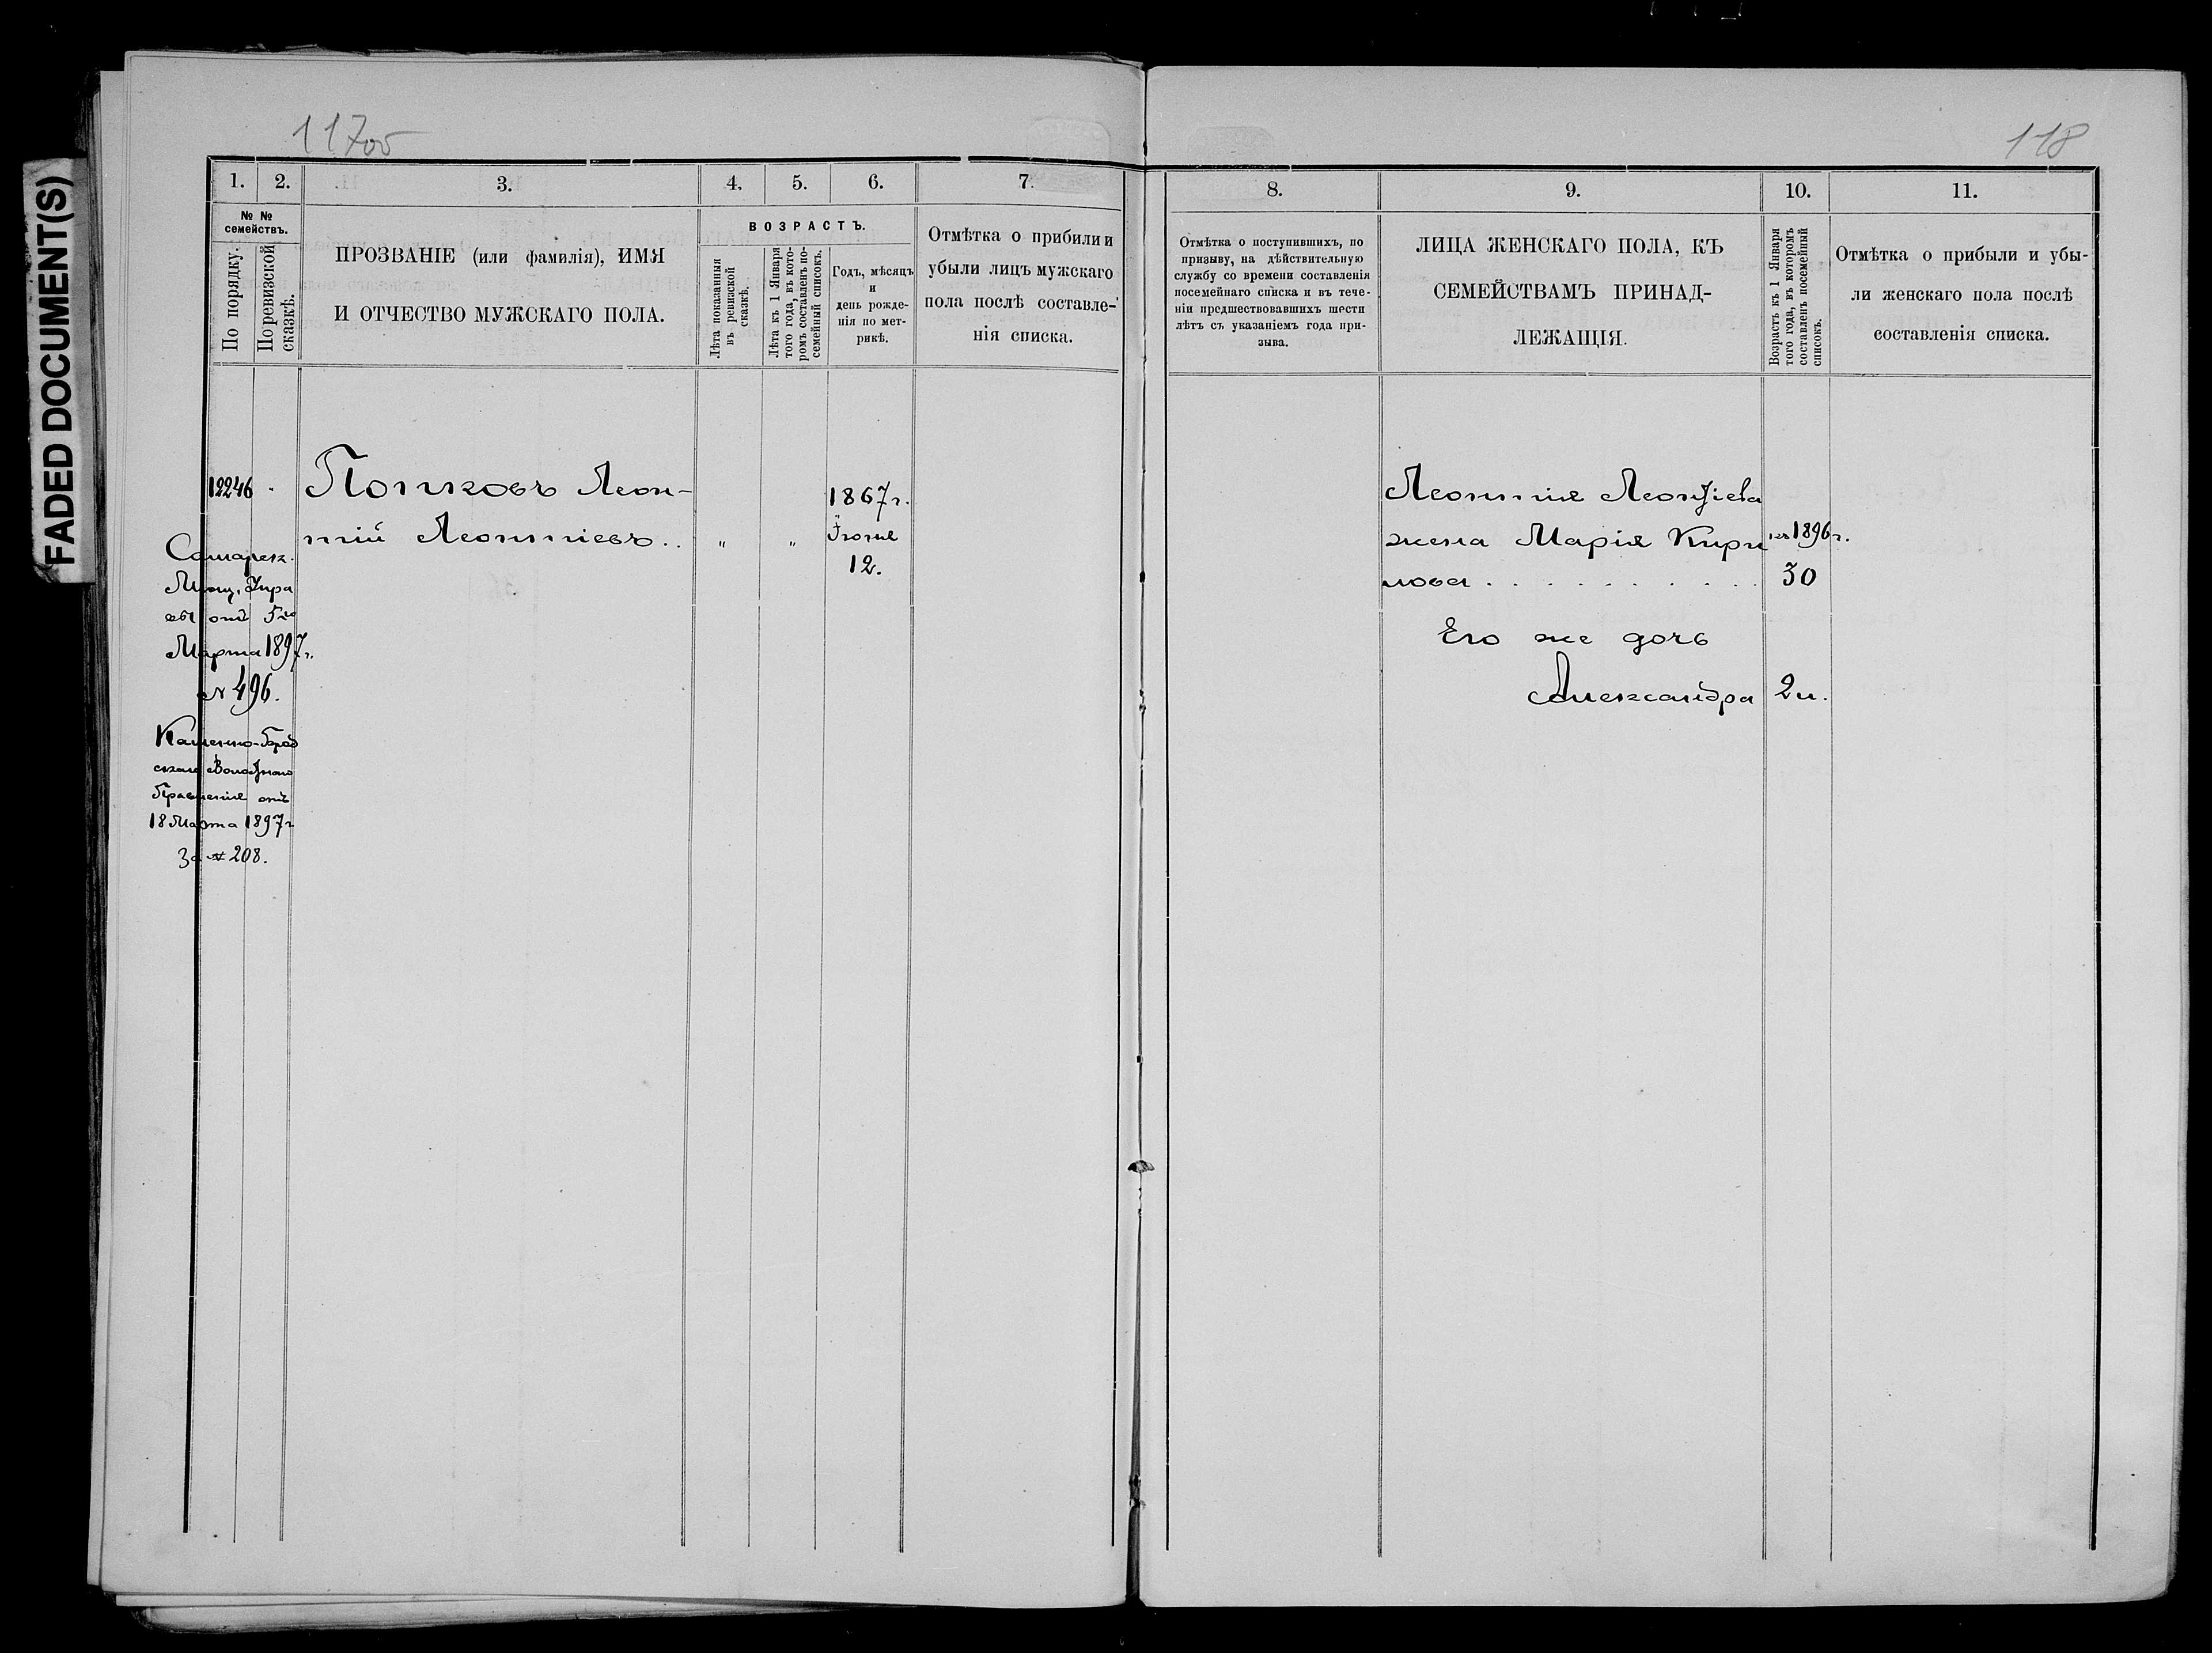 FADED DOCUMENT(S)
117об
118
1.
2.
3.
4.
5.
6.
7.
№ №
семействъ.
По порядку.
По ревизской
сказкѣ.
ПРОЗВАНІЕ (или фамилія), ИМЯ
И ОТЧЕСТВО МУЖСКАГО ПОЛА.
ВОЗРАСТЪ.
Лѣта показанныя
въ ревизской
сказкѣ.
Лѣта къ 1 Января
того года, въ кото-
ромъ составленъ по-
семейный списокъ.
Годъ, мѣсяцъ
и
день рожде-
нія по мет-
рикѣ.
Отмѣтка о прибыли и
убыли лицъ мужскаго
пола послѣ составле-
нія списка.
12246
Леон-
тій Леонтіевъ..
" "
1867 г.
Іюня
12.
Самарск.
Мѣщ. Упра
вы отъ 5го
Марта 1897 г.
№ 496.
Правленія отъ
18 Марта 1897 г
За № 208.
8.
9.
10.
11.
Отмѣтка о поступившихъ, по
призыву, на дѣйствительную
службу со времени составленія
посемейнаго списка и въ тече-
ніи предшествовавшихъ шести
лѣтъ съ указаніемъ года при-
зыва.
ЛИЦА ЖЕНСКАГО ПОЛА, КЪ
СЕМЕЙСТВАМЪ ПРИНАД-
ЛЕЖАЩІЯ.
Возрастъ къ 1 Января
того года, въ которомъ
составленъ посемейный
списокъ.
Отмѣтка о прибыли и убы-
ли женскаго пола послѣ
составленія списка.
Леонтія Леонтіева
жена Марія Кири
лова . . . . . . . . . .
къ 1896 г.
30
Его же дочь
Александра
2 л.